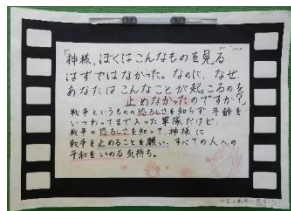 「神様、ぼくはこんなものを見る
はずではなかった。なのに、なぜ、
あなたはこんなことが起こるのを
止めなかったのですか?」
戦争というものの恐ろしさを知らず 年齢を
いつわってまで入った軍隊だけど、
戦争の恐ろしさを知って、神様に
戦争を止めることを願い、すべての人への
平和をいのる気持ち。